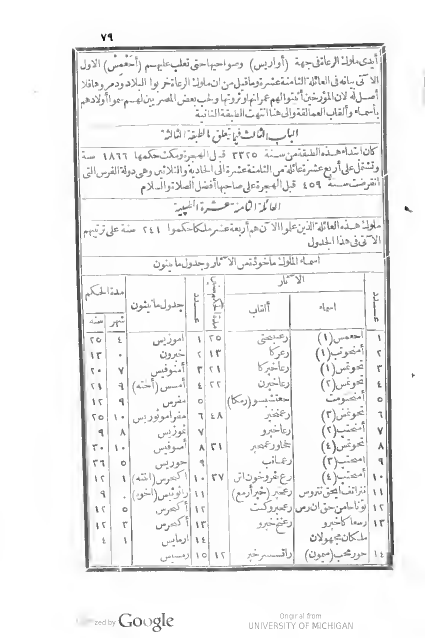 ٧٩
أيدى ملوك الرعاة فى جهة (أواريس) وضواحيها حتى تغلب عليهم (أحعمس) الاول
الآتى بيانه فى العائلة الثامنة عشرة وما قيل من ان ملوك الرعاة خربوا البلاد ودمروها فلا
أصل له لان المؤرخين أثبتوا لهم عمرانها وثروتها ولحب بعض المصريين لهم سموا أولادهم
بأسماء وألقاب العمالقة والى هنا انتهت الطبقة الثانية
الباب الثالث فيما يتعلق بالطبقة الثالثة
كان ابتداء هذه الطبقة من سنة ٢٣٢٥ قبل الهجرة ومكث حكمها ١٨٦٦ سنة
وتشتمل على أربع عشرة عائلة من الثامنة عشرة الى الحادية والثلاثين وهى دولة الفرس التى
انقرضت سنة ٤٥٩ قبل الهجرة على صاحبها أفضل الصلاة والسلام
العائلة الثامنة عشرة الطيبية
ملوك هذه العائلة الذين علموا الى الآن هم أربعة عشر ملكا حكموا ٢٤١ سنة على ترتيبهم
الآتى فى هذا الجدول
اسماء الملوك مأخوذة من الآثار وجدول مانيتون
عدد الآثار مدة الحكم سنين عدد جدول مانيتون مدة الحكم
اسماء ألقاب شهر سنه
١ أحعمس (١) رع نب پحتى ٢٥ ١ أموزيس ٤ ٢٥
٢ أمنحوتب (١) رع سركا ١٣ ٢ خبرون ٠ ١٣
٣ تحوتمس (١) رع اخبركا ٢١ ٣ أمنوفيس ٧ ٢٠
٤ تحوتمس (٢) رع اخبرن ٢٢ ٤ أمسس (أخته) ٩ ٢١
٥ ٥ مفرس ٩ ١٢
٦ تحوتمس (٣) رع منخبر ٤٨ ٦ ١٠ ٢٥
٧ أمنحتب (٢) رع اخبرو ٧ تموزيس ٨ ٩
٨ تحوتمس (٤) ٣١ ٨ أموفيس ١٠ ٣٠
٩ أمنحتب (٣) رع مانب ٩ حوريس ٥ ٣٦
١٠ أمنحتب (٤) ٢٧ ١٠ ١ ١٢
١١ ١١ ٠ ٩
١٢ ١٢ ٥ ١٢
١٣ رسعاكاخبرو ١٣ ٣ ١٢
ملكان مجهولان ١٤ ارمايس ١ ٤
١٤ حور محب ١٢ ١٥ رمسيس
Digitized by Google
Original from
UNIVERSITY OF MICHIGAN